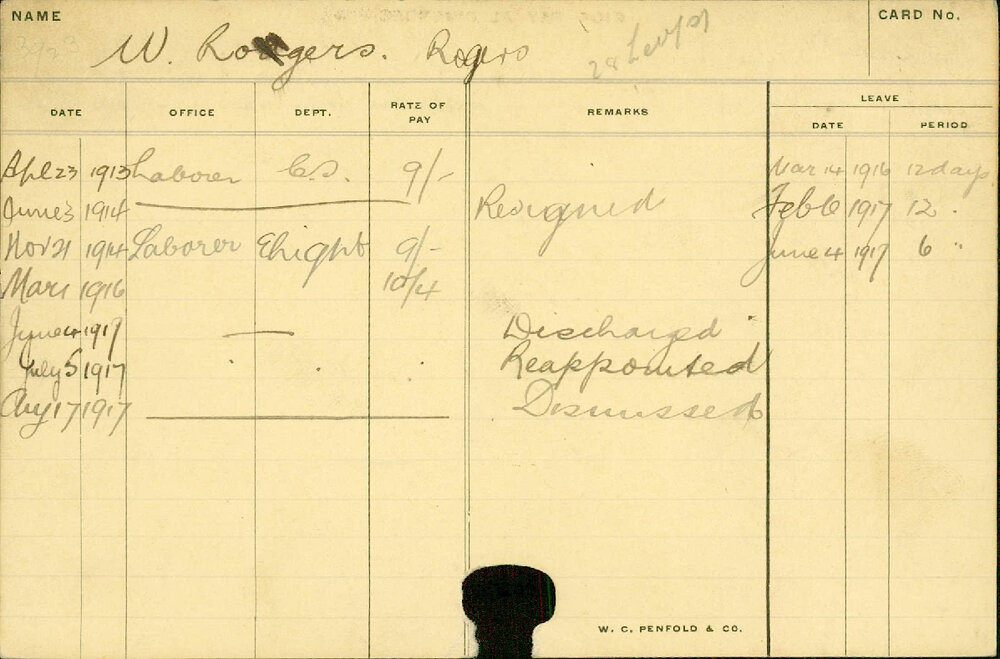 NAME
CARD No.
W. Rodgers. Rogers
DATE OFFICE DEPT. RATE OF PAY REMARKS LEAVE
DATE PERIOD
Apl 23 1913 Laborer C.S. 9/- Mar 14 1916 12 days
June 3 1914 Resigned Feb 6 1917 12 "
Nov 21 1914 Laborer 9/- June 4 1917 6 "
Mar 1 1916 10/4
June 4 1917 — Discharged
July 5 1917 " " " Reappointed
Aug 17 1917 Dismissed
W. C. PENFOLD & CO.